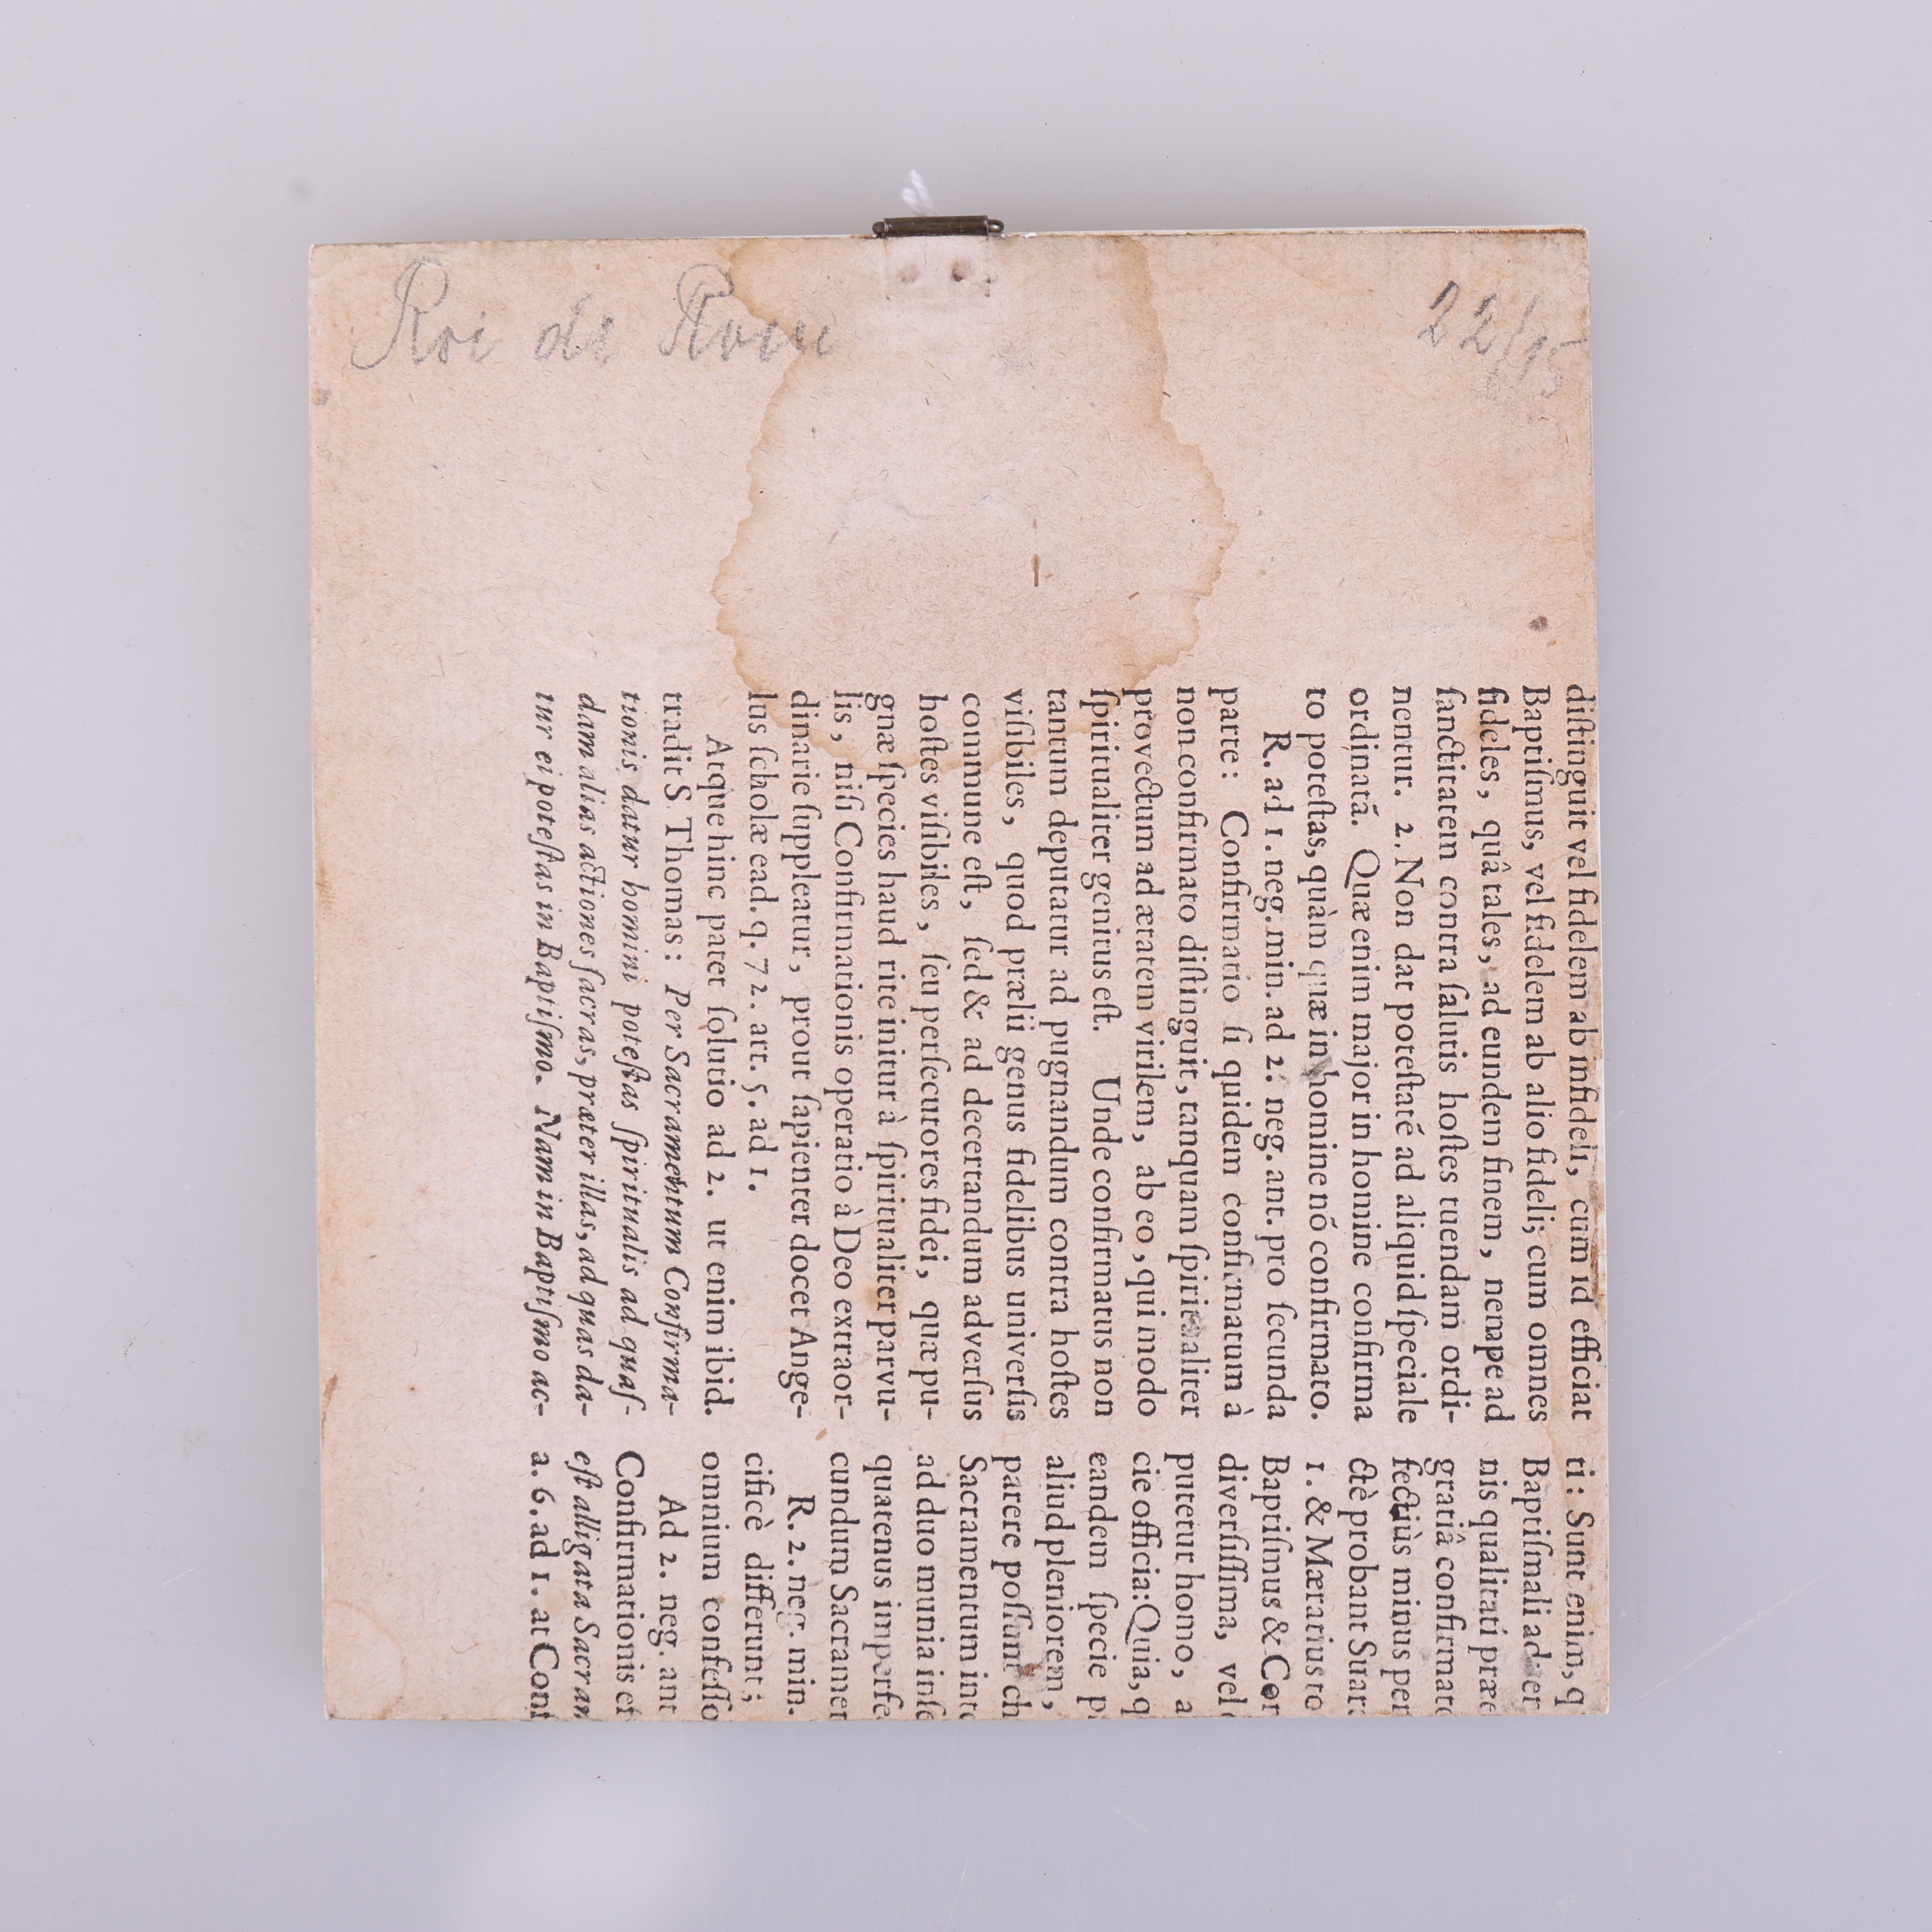 Roi de Rome
22/15
diſtinguit vel fidelem ab infideli, cum id efficiat
Baptiſmus, vel fidelem ab alio fideli; cum omnes
fideles, quâ tales, ad eundem finem, nempe ad
ſanctitatem contra ſalutis hoſtes tuendam ordi-
nentur. 2. Non dat poteſtatē ad aliquid ſpeciale
ordinatā. Quæ enim major in homine confirma
to poteſtas, quàm quæ in homine nō confirmato.
R. ad 1. neg. min. ad 2. neg. ant. pro ſecunda
parte: Confirmatio ſi quidem confirmatum à
non confirmato diſtinguit, tanquam ſpiritualiter
provectum ad ætatem virilem, ab eo, qui modo
ſpiritualiter genitus eſt. Unde confirmatus non
tantum deputatur ad pugnandum contra hoſtes
viſibiles, quod prælii genus fidelibus univerſis
commune eſt, ſed & ad decertandum adverſus
hoſtes viſibiles, ſeu perſecutores fidei, quæ pu-
gnæ ſpecies haud rite initur à ſpiritualiter parvu-
lis, niſi Confirmationis operatio à Deo extraor-
dinarie ſuppleatur, prout ſapienter docet Ange-
lus ſcholæ ead. q. 72. art. 5. ad 1.
Atque hinc patet ſolutio ad 2. ut enim ibid.
tradit S. Thomas: Per Sacramentum Confirma-
tionis datur homini poteſtas ſpiritualis ad quaſ-
dam alias actiones ſacras, præter illas, ad quas da-
tur ei poteſtas in Baptiſmo. Nam in Baptiſmo ac-
ti: Sunt enim, q
Baptiſmali ad er
nis qualitati præ
gratiâ confirmat
fectiùs minus per
ctè probant Suar
1. & Mæratius to
Baptiſmus & Cor
diverſiſſima, vel
putetur homo, a
cie officia: Quia, q
eandem ſpecie p
aliud pleniorem,
parere poſſunt ch
Sacramentum int
ad duo munia inſ
quatenus imperfe
cundum Sacramen
R. 2. neg. min.
cificè differunt;
omnium confeſſo
Ad 2. neg. ant
Confirmationis ef
eſt alligata Sacram
a. 6. ad 1. at Conf